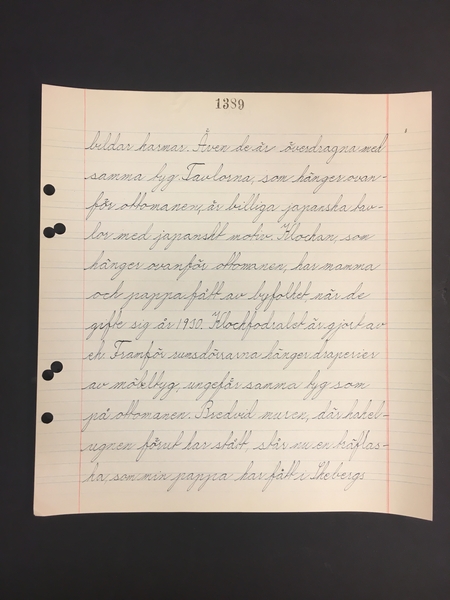 1389
bildar karmar. Även de är överdragna med
samma tyg. Tavlorna, som hänger ovan-
för ottomanen, är billiga japanska tav-
lor med japanskt motiv. Klockan, som
hänger ovanför ottomanen, har mamma
och pappa fått av byfolket när de
gifte sig år 1930. Klockfodralet är gjort av
ek. Framför rumsdörrarna hänger draperier
av möbeltyg, ungefär samma tyg som
på ottomanen. Bredvid muren, där kakel-
ugnen förut har stått, står nu en
ka, som min pappa har fått i Skebergs